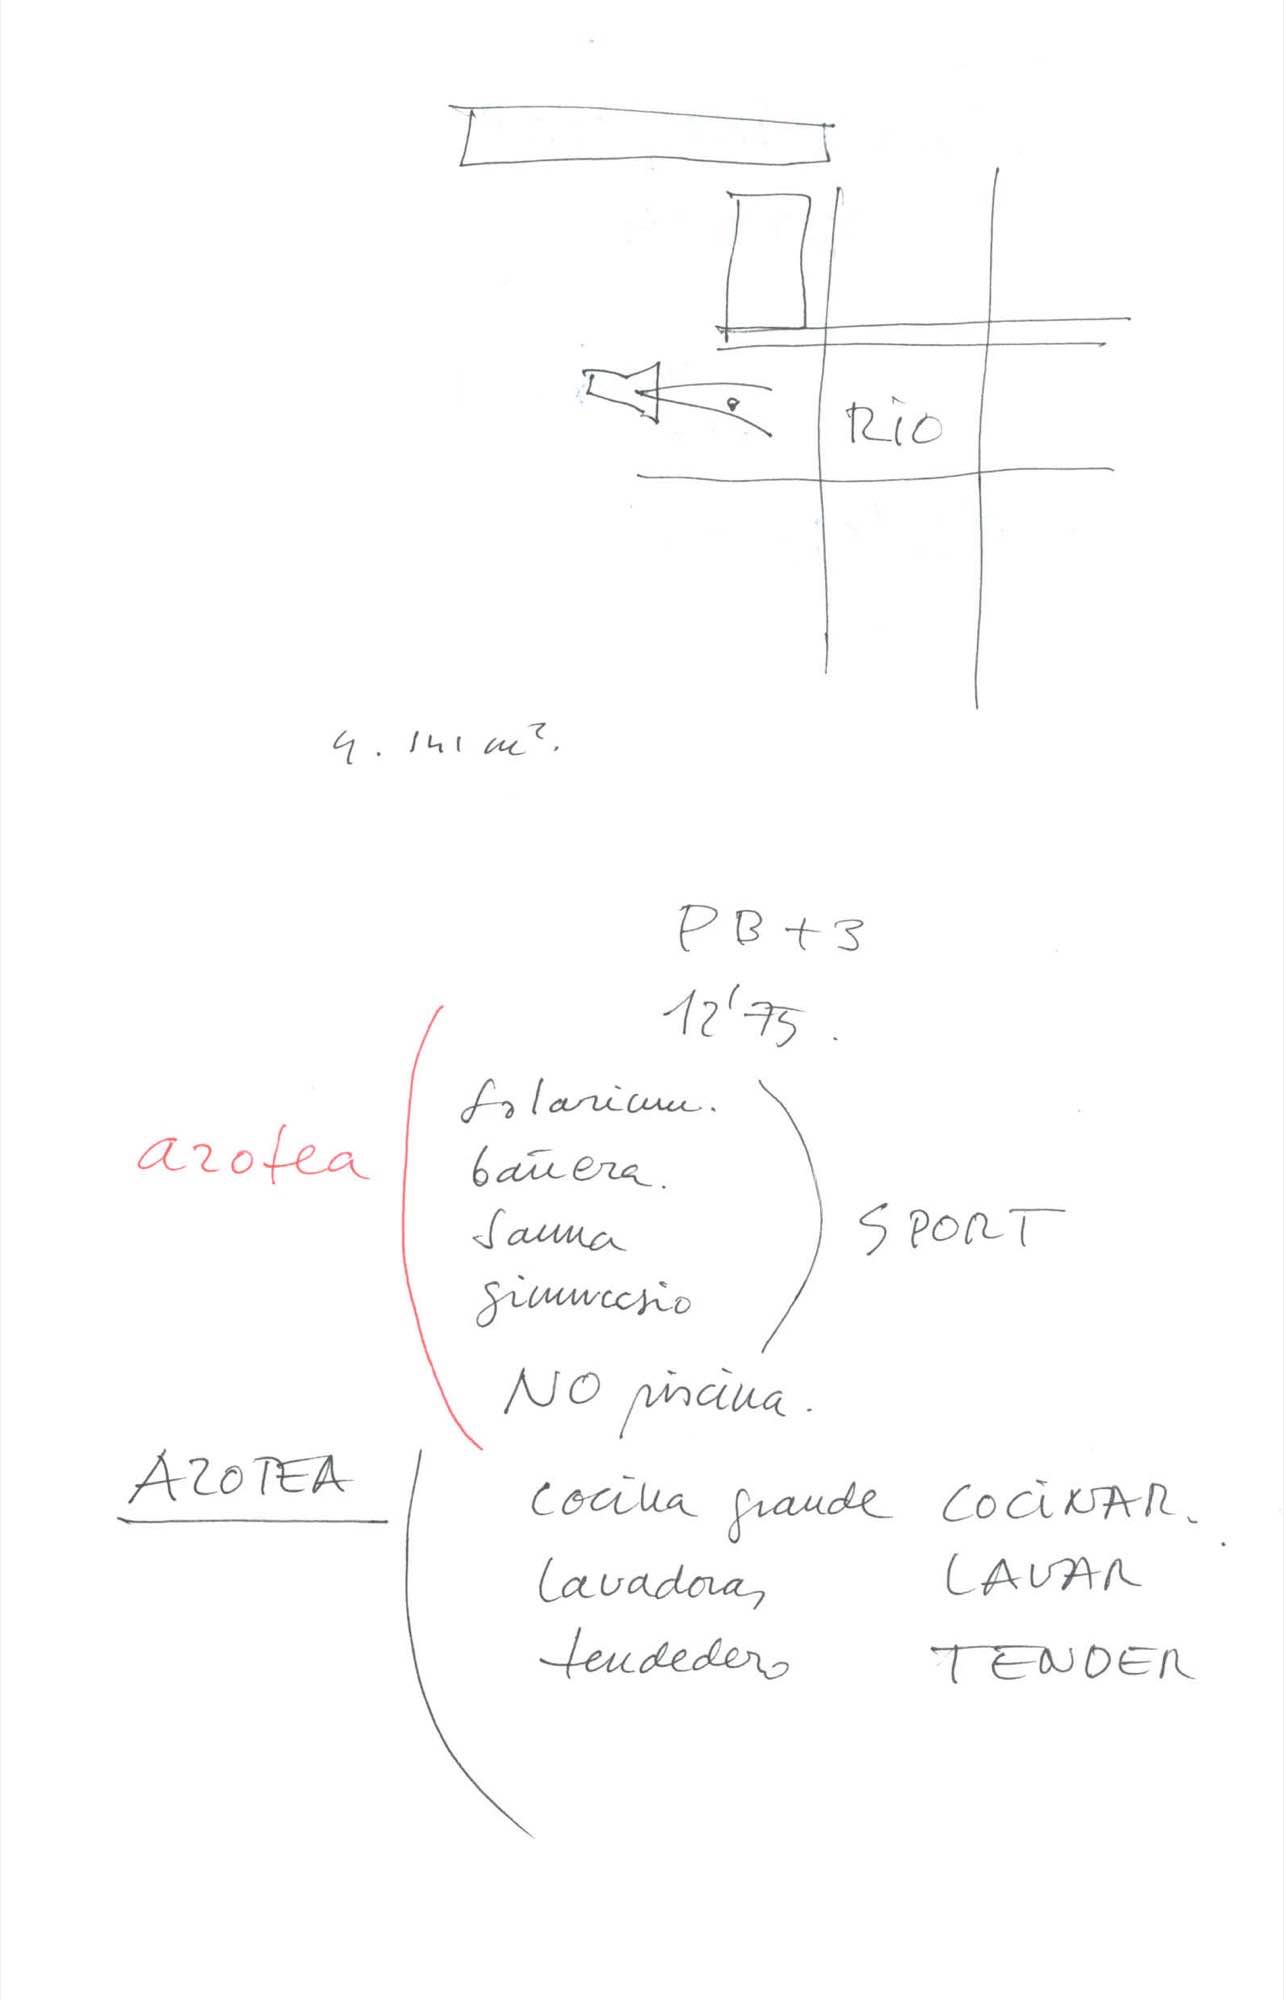 RÍO
4.141 m².
PB+3
12'75.
azotea
solarium.
bañera.
sauna
gimnasio
SPORT
NO piscina.
AZOTEA
cocina grande COCINAR.
lavadoras LAVAR
tendedero TENDER